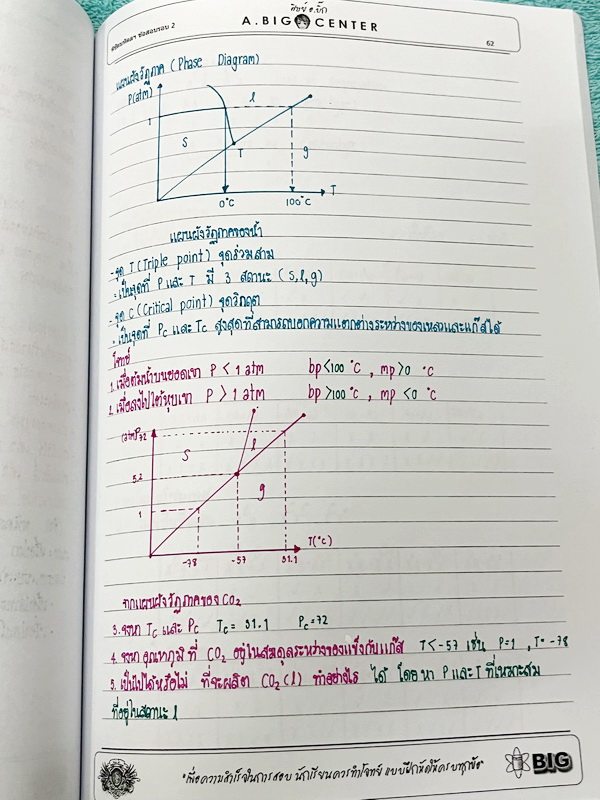 ศิษย์ อ.บิ๊ก
A.BIG CENTER
ข้อสอบรอบ 2
62
แผนผังวัฏภาค (Phase Diagram)
P(atm)
1
S
l
T
g
T
0°C
100°C
แผนผังวัฏภาคของน้ำ
- จุด T (Triple point) จุดร่วมสาม
= เป็นจุดที่ P และ T มี 3 สถานะ (s,l,g)
- จุด C (Critical point) จุดวิกฤต
= เป็นจุดที่ Pc และ Tc สูงสุดที่สามารถบอกความแตกต่างระหว่างของเหลวและแก๊สได้
โจทย์
1. เมื่อต้มน้ำบนยอดเขา P < 1 atm bp<100 °C , mp>0 °C
2. เมื่อลงไปใต้หุบเขา P > 1 atm bp>100 °C , mp <0 °C
(atm)P
72
S
l
5.2
g
1
-78
-57
31.1
T(°c)
จากแผนผังวัฏภาคของ CO2
3. จงหา Tc และ Pc Tc = 31.1 Pc=72
4. จงหา อุณหภูมิ ที่ CO2 อยู่ในสมดุลระหว่างของแข็งกับแก๊ส T<-57 เช่น P=1 , T=-78
5. เป็นไปได้หรือไม่ ที่จะผลิต CO2 (l) ทำอย่างไร ได้ โดยหา P และ T ที่เหมาะสม
ที่อยู่ในสถานะ l
"เพื่อความสำเร็จในการสอบ นักเรียนควรทำโจทย์ แบบฝึกหัดให้ครบทุกข้อ"
BIG